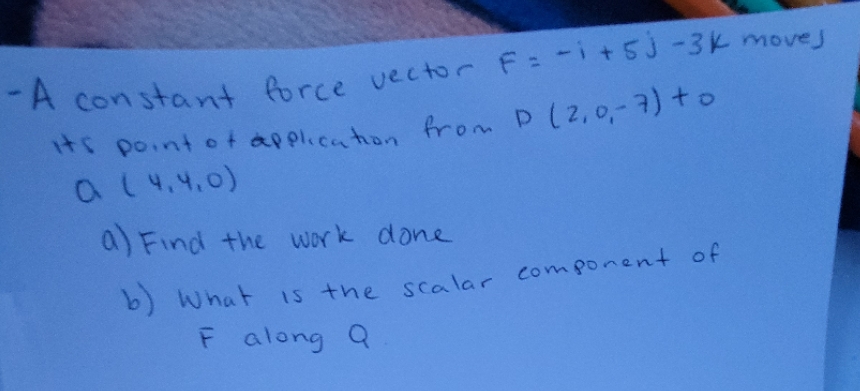 - A constant force vector F = -i + 5j - 3k moves
its point of application from P (2,0,-7) to
Q (4,4,0)
a) Find the work done
b) What is the scalar component of
F along Q